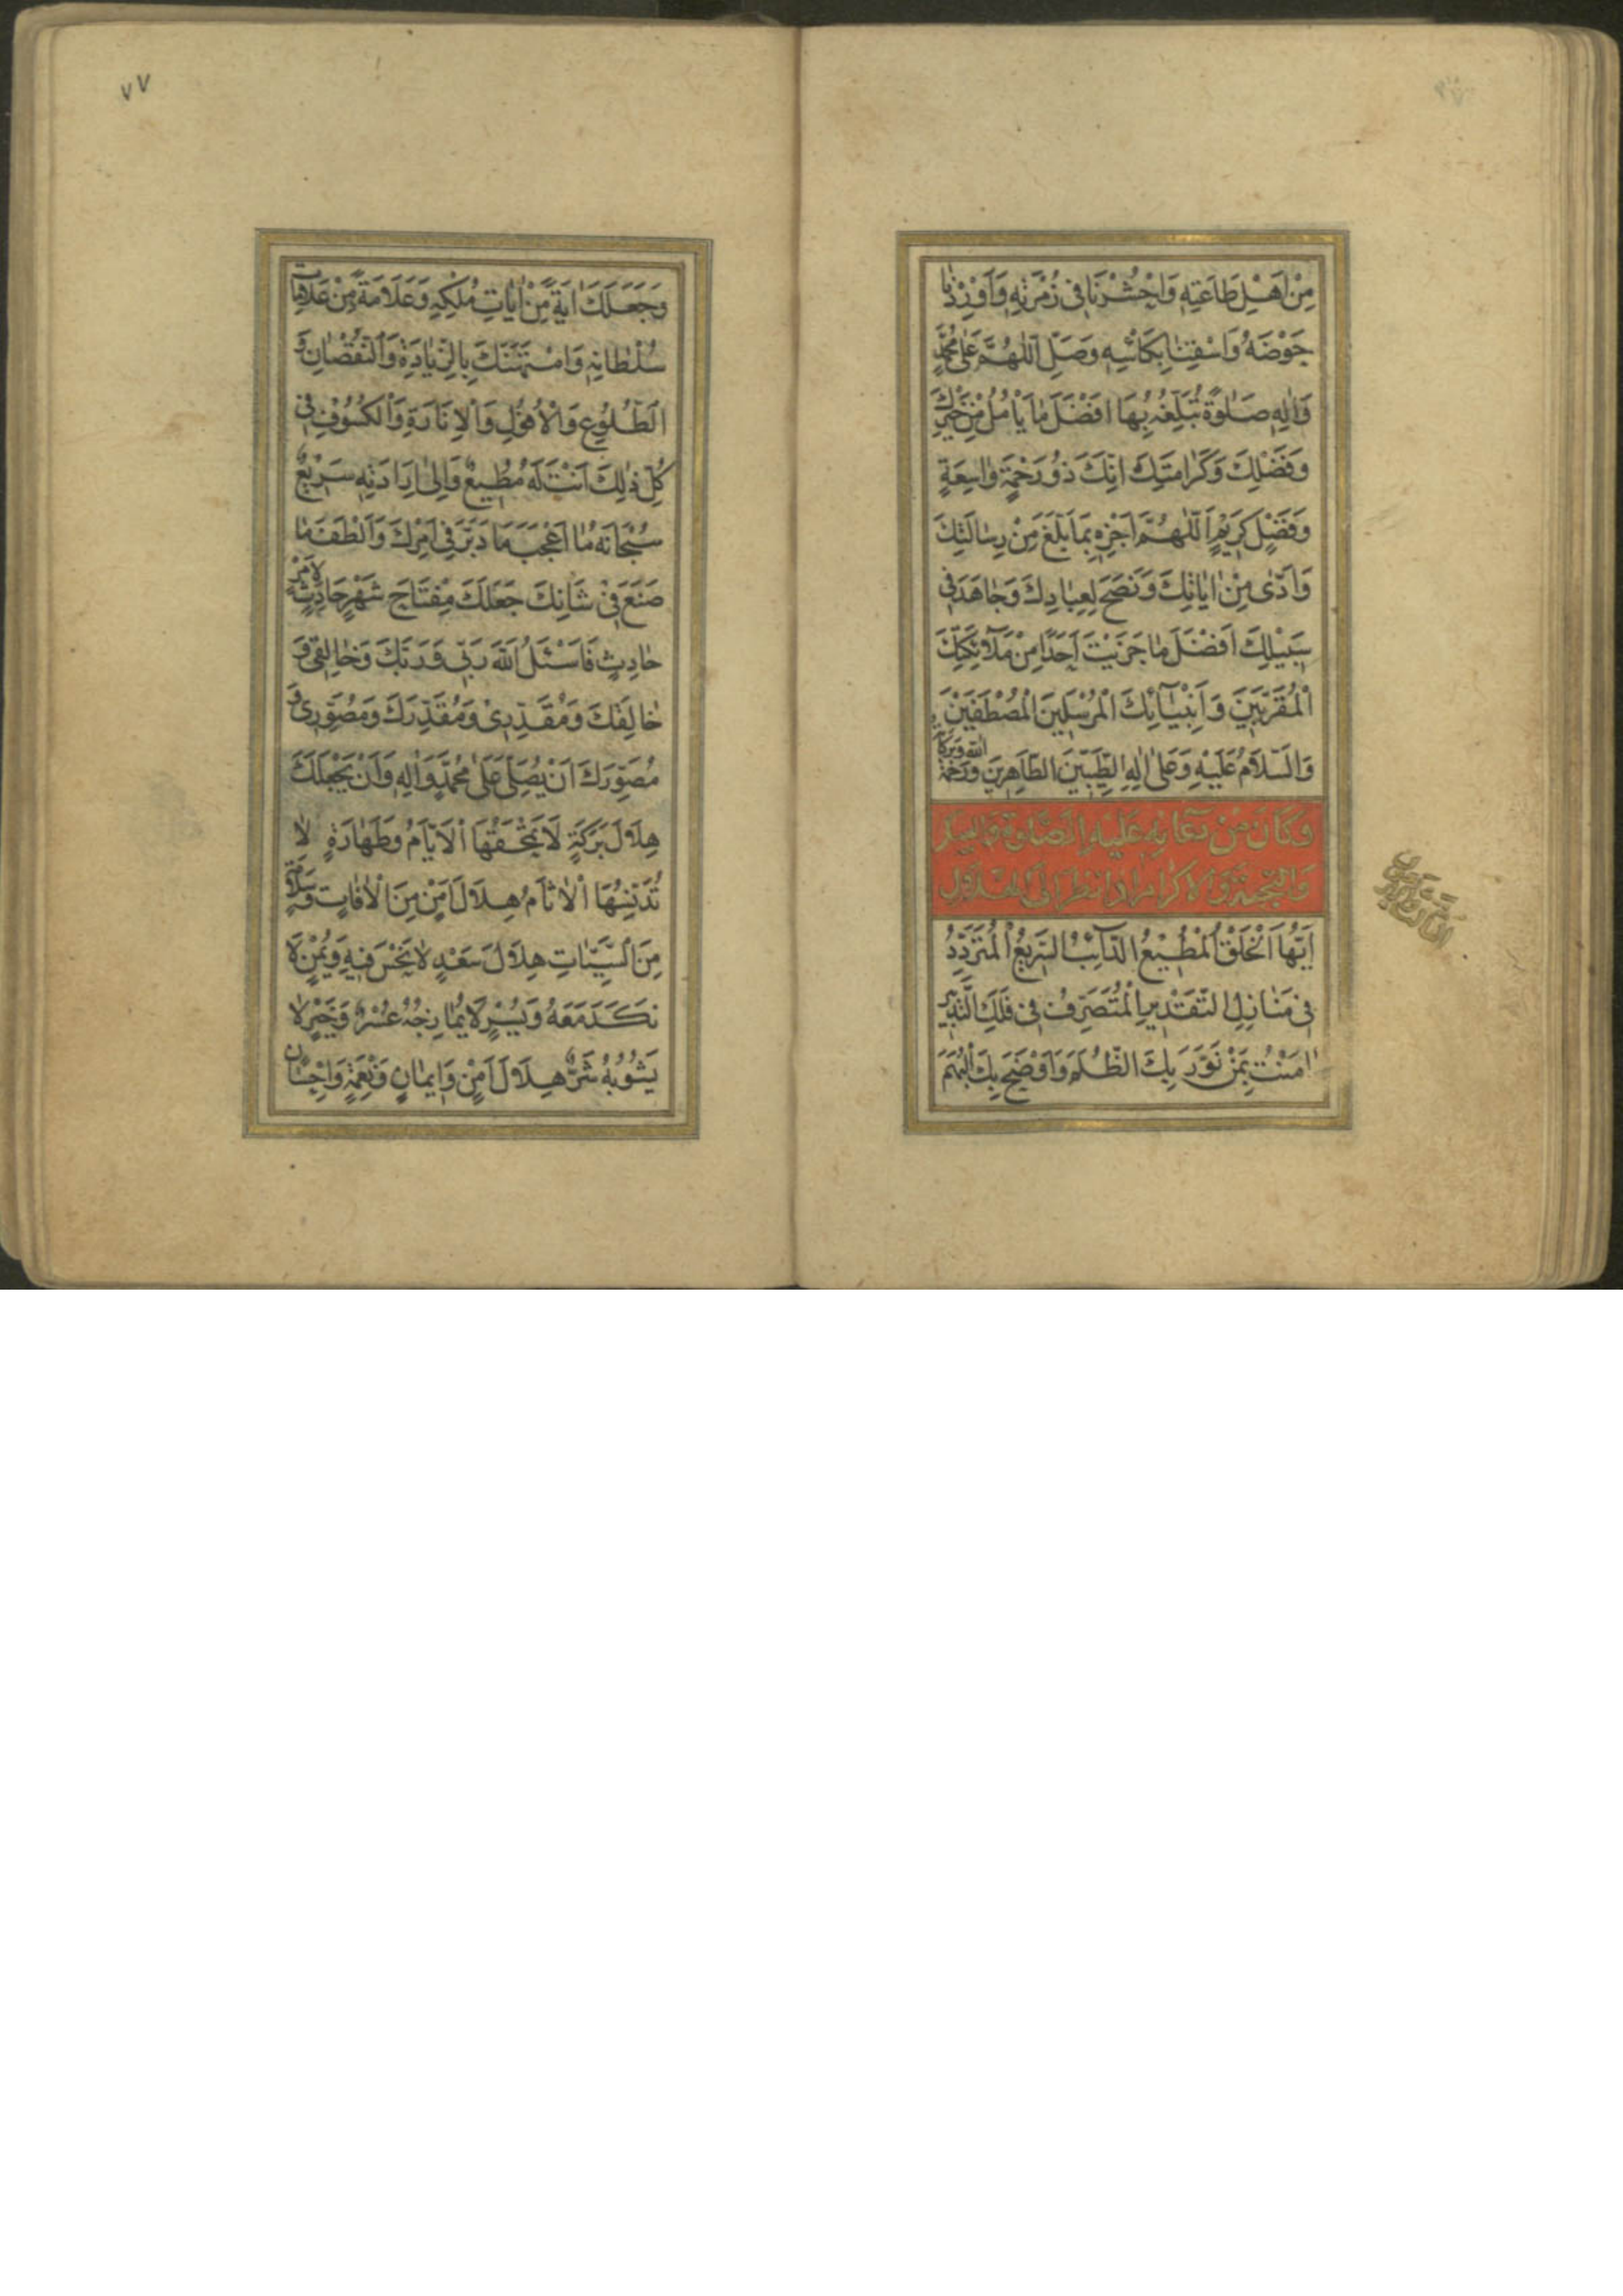 مِنْ اَهْلِ طَاعَتِهِ وَاحْشُرْنَا فِى زُمْرَتِهِ وَاَوْرِدْنَا
حَوْضَهُ وَاسْقِنَا بِكَاْسِهِ وَصَلِّ اَللّٰهُمَّ عَلٰى مُحَمَّدٍ
وَاٰلِهِ صَلٰوةً تُبَلِّغُهُ بِهَا اَفْضَلَ مَا يَأْمُلُ مِنْ خَيْرِكَ
وَفَضْلِكَ وَكَرَامَتِكَ اِنَّكَ ذُو رَحْمَةٍ وَاسِعَةٍ
وَفَضْلٍ كَرِيْمٍ اَللّٰهُمَّ اَجْزِهِ بِمَا بَلَّغَ مِنْ رِسَالَتِكَ
وَاَدّٰى مِنْ اٰيَاتِكَ وَنَصَحَ لِعِبَادِكَ وَجَاهَدَ فِى
سَبِيْلِكَ اَفْضَلَ مَا جَزَيْتَ اَحَدًا مِنْ مَلٰٓئِكَتِكَ
الْمُقَرَّبِيْنَ وَاَنْبِيَآئِكَ الْمُرْسَلِيْنَ الْمُصْطَفَيْنَ
وَالسَّلَامُ عَلَيْهِ وَعَلٰى اٰلِهِ الطَّيِّبِيْنَ الطَّاهِرِيْنَ وَرَحْمَةُ اللّٰهِ وَبَرَكَاتُهُ
وَكَانَ مِنْ دُعَائِهِ عَلَيْهِ الصَّلٰوةُ وَالسَّلَامُ
وَالتَّحِيَّةُ وَالْاِكْرَامُ اِذَا نَظَرَ اِلَى الْهِلَالِ
اَيُّهَا الْخَلْقُ الْمُطِيْعُ الدَّآئِبُ السَّرِيْعُ الْمُتَرَدِّدُ
فِى مَنَازِلِ التَّقْدِيْرِ الْمُتَصَرِّفُ فِى فَلَكِ التَّدْبِيْرِ
اٰمَنْتُ بِمَنْ نَوَّرَ بِكَ الظُّلَمَ وَاَوْضَحَ بِكَ الْبُهَمَ
٧٧
وَجَعَلَكَ اٰيَةً مِنْ اٰيَاتِ مُلْكِهِ وَعَلَامَةً مِنْ عَلَامَاتِ
سُلْطَانِهِ وَامْتَهَنَكَ بِالزِّيَادَةِ وَالنُّقْصَانِ وَ
الطُّلُوْعِ وَالْاُفُوْلِ وَالْاِنَارَةِ وَالْكُسُوْفِ فِى
كُلِّ ذٰلِكَ اَنْتَ لَهُ مُطِيْعٌ وَاِلٰى اِرَادَتِهِ سَرِيْعٌ
سُبْحَانَهُ مَا اَعْجَبَ مَا دَبَّرَ فِى اَمْرِكَ وَاَلْطَفَ مَا
صَنَعَ فِى شَاْنِكَ جَعَلَكَ مِفْتَاحَ شَهْرٍ حَادِثٍ لِاَمْرٍ
حَادِثٍ فَاَسْئَلُ اللّٰهَ رَبِّى وَرَبَّكَ وَخَالِقِى وَ
خَالِقَكَ وَمُقَدِّرِى وَمُقَدِّرَكَ وَمُصَوِّرِى وَ
مُصَوِّرَكَ اَنْ يُصَلِّىَ عَلٰى مُحَمَّدٍ وَاٰلِهِ وَاَنْ يَجْعَلَكَ
هِلَالَ بَرَكَةٍ لَا تَمْحَقُهَا الْاَيَّامُ وَطَهَارَةٍ لَا
تُدَنِّسُهَا الْاٰثَامُ هِلَالَ اَمْنٍ مِنَ الْاٰفَاتِ وَسَلَامَةٍ
مِنَ السَّيِّئَاتِ هِلَالَ سَعْدٍ لَا نَحْسَ فِيْهِ وَيُمْنٍ لَا
نَكَدَ مَعَهُ وَيُسْرٍ لَا يُمَازِجُهُ عُسْرٌ وَخَيْرٍ لَا
يَشُوْبُهُ شَرٌّ هِلَالَ اَمْنٍ وَاِيْمَانٍ وَنِعْمَةٍ وَاِحْسَانٍ